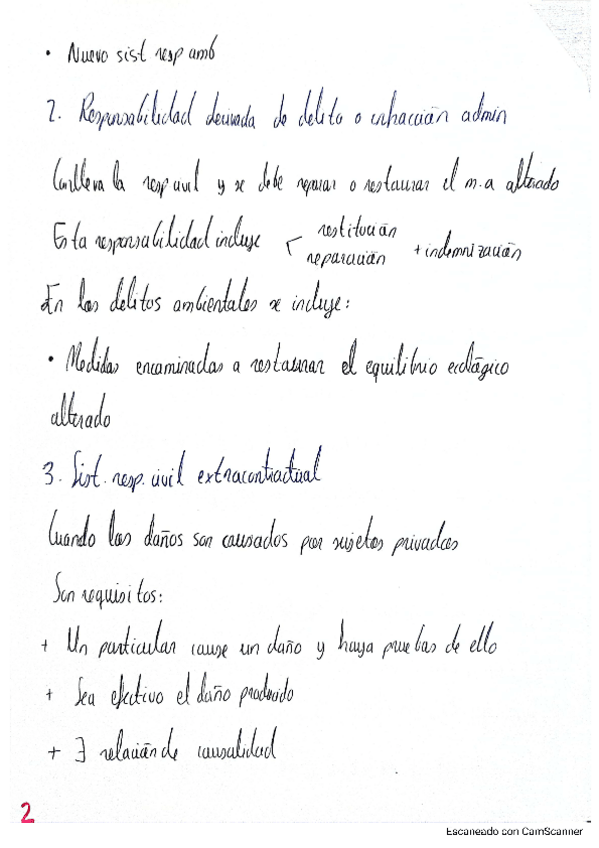 • Nuevo sist resp amb
2. Responsabilidad derivada de delito o infracción admin
Conlleva la resp civil y se debe reparar o restaurar el m.a alterado
Esta responsabilidad incluye < restitución
reparación + indemnización
En los delitos ambientales se incluye:
• Medidas encaminadas a restaurar el equilibrio ecológico
alterado
3. Sist. resp. civil extracontractual
Cuando los daños son causados por sujetos privados
Son requisitos:
+ Un particular cause un daño y haya pruebas de ello
+ Sea efectivo el daño producido
+ ∃ relación de causalidad
2
Escaneado con CamScanner